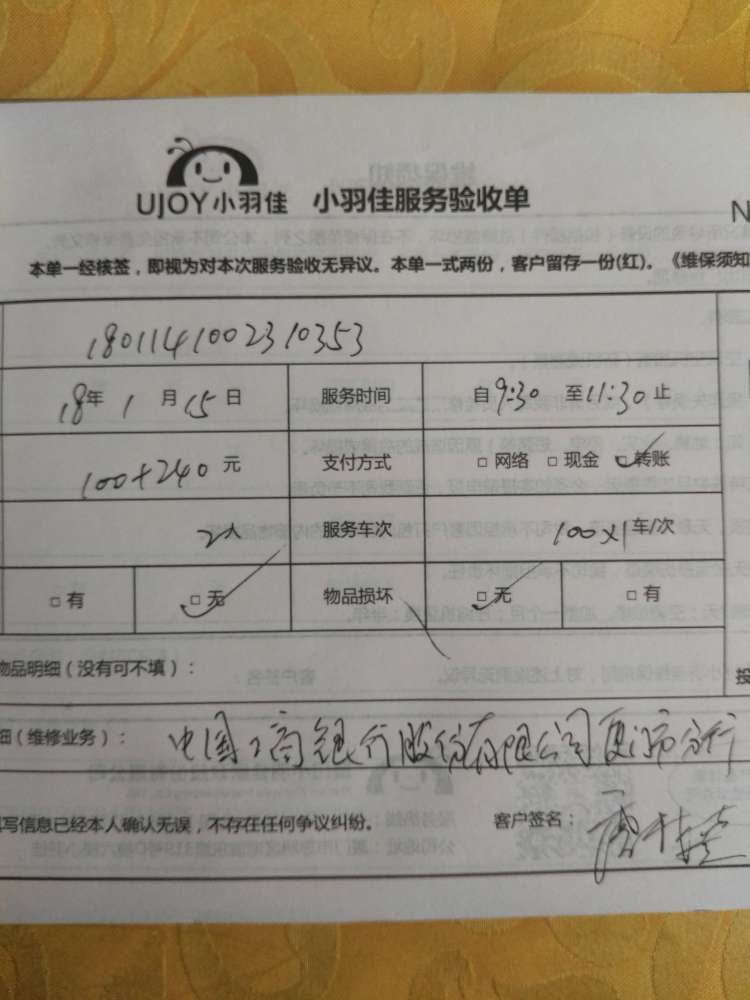 UJOY小羽佳 小羽佳服务验收单
N
本单一经核签，即视为对本次服务验收无异议。本单一式两份，客户留存一份(红)。《维保须知
1801141002310353
18年1月15日 服务时间 自9:30至11:30止
100+240元 支付方式 □网络 □现金 □转账
2人 服务车次 100×1车/次
□有 □无 物品损坏 □无 □有
物品明细（没有可不填）：
投
细（维修业务）： 中国工商银行股份有限公司厦门市分行
写信息已经本人确认无误，不存在任何争议纠纷。 客户签名：